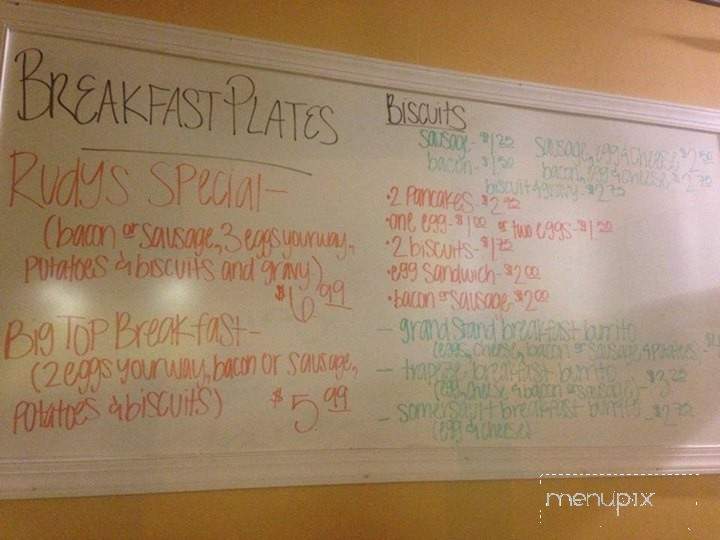 BREAKFAST PLATES
Rudys Special-
(bacon or sausage, 3 eggs your way,
potatoes & biscuits and gravy)
$6.99
Big Top Breakfast-
(2 eggs your way, bacon or sausage,
potatoes & biscuits) $5.99
Biscuits
sausage- $1.25 sausage, egg & cheese $2.50
bacon- $1.50 bacon, egg & cheese
biscuit & gravy- $2.75
• 2 pancakes-
• one egg- $1.00 or two eggs- $1.50
• 2 biscuits- $1.75
• egg sandwich- $2.00
• bacon or sausage- $2.00
- grand stand breakfast burrito
(eggs, cheese, bacon or sausage & potatoes -
- trapeze breakfast burrito
(egg, cheese & bacon or sausage) -
- somersault breakfast burrito -
(egg & cheese)
menupix